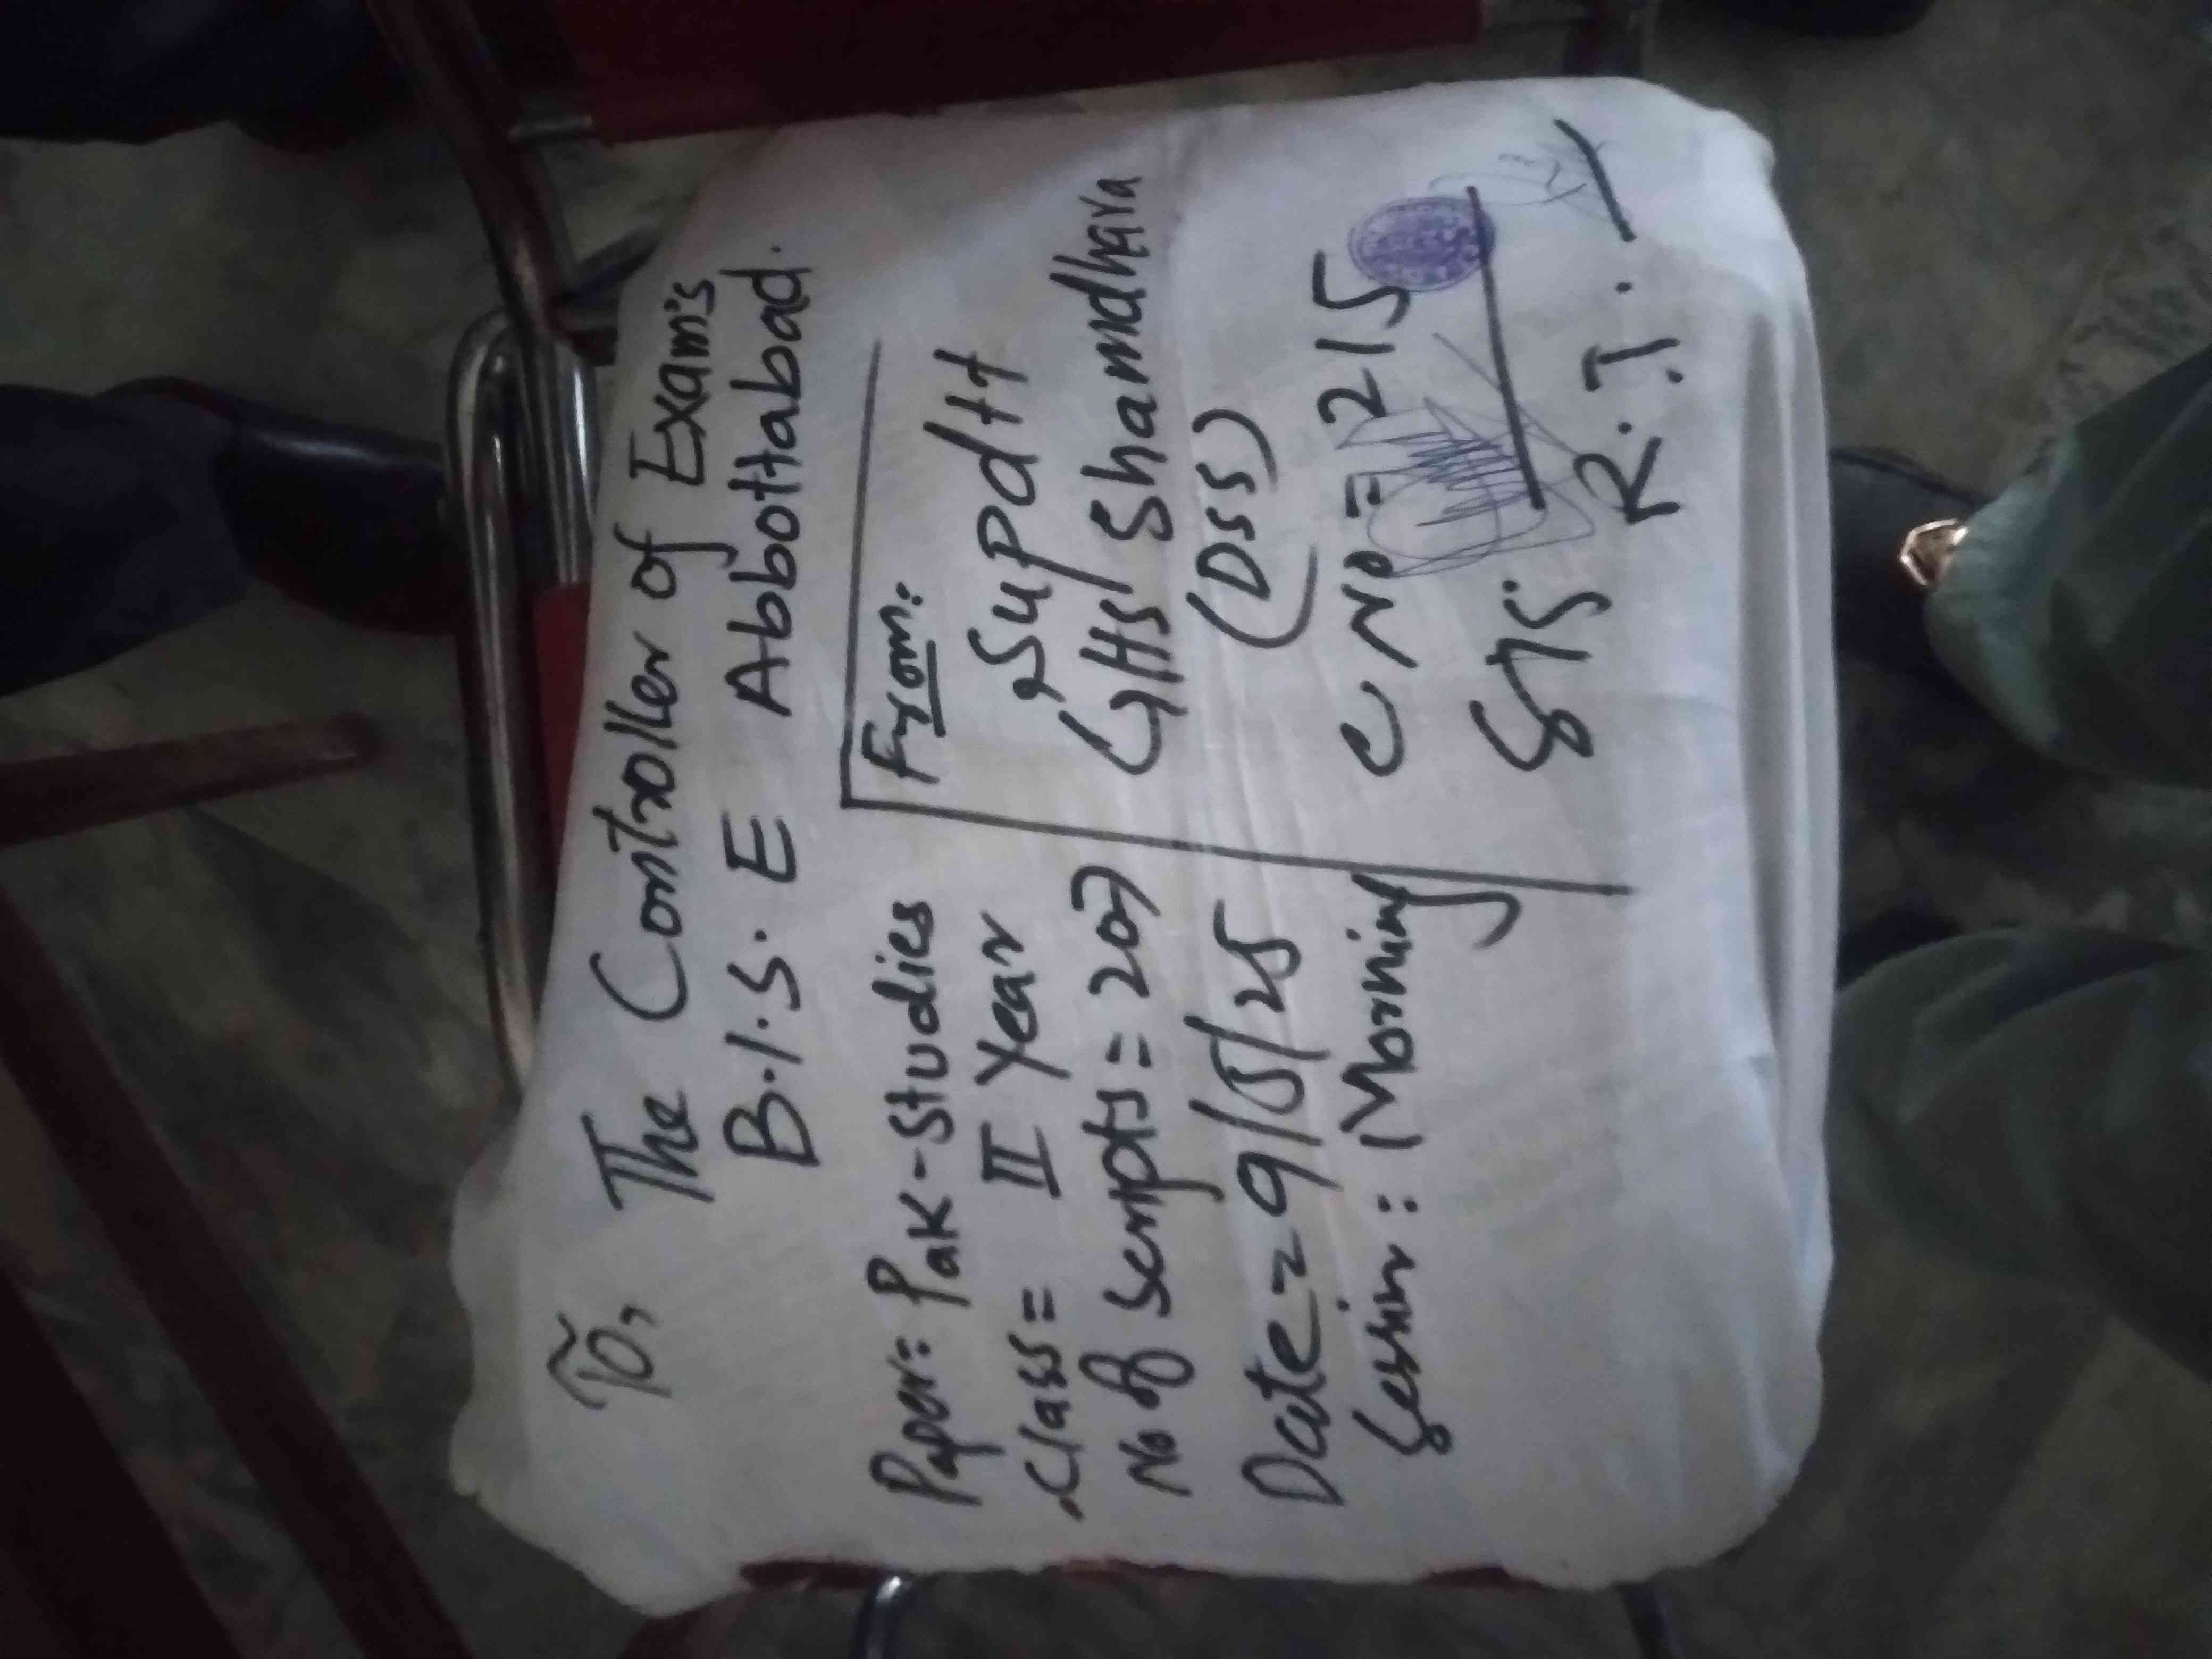 To,
The Controller of Exam's
B.I.S.E Abbottabad.
Paper: Pak-Studies
Class = II Year
No of Scripts = 207
Date = 9/5/25
Session: Morning
From:
Supdtt
GHS Shamdhara
(DSS)
C No = 215
Sig
R.I.